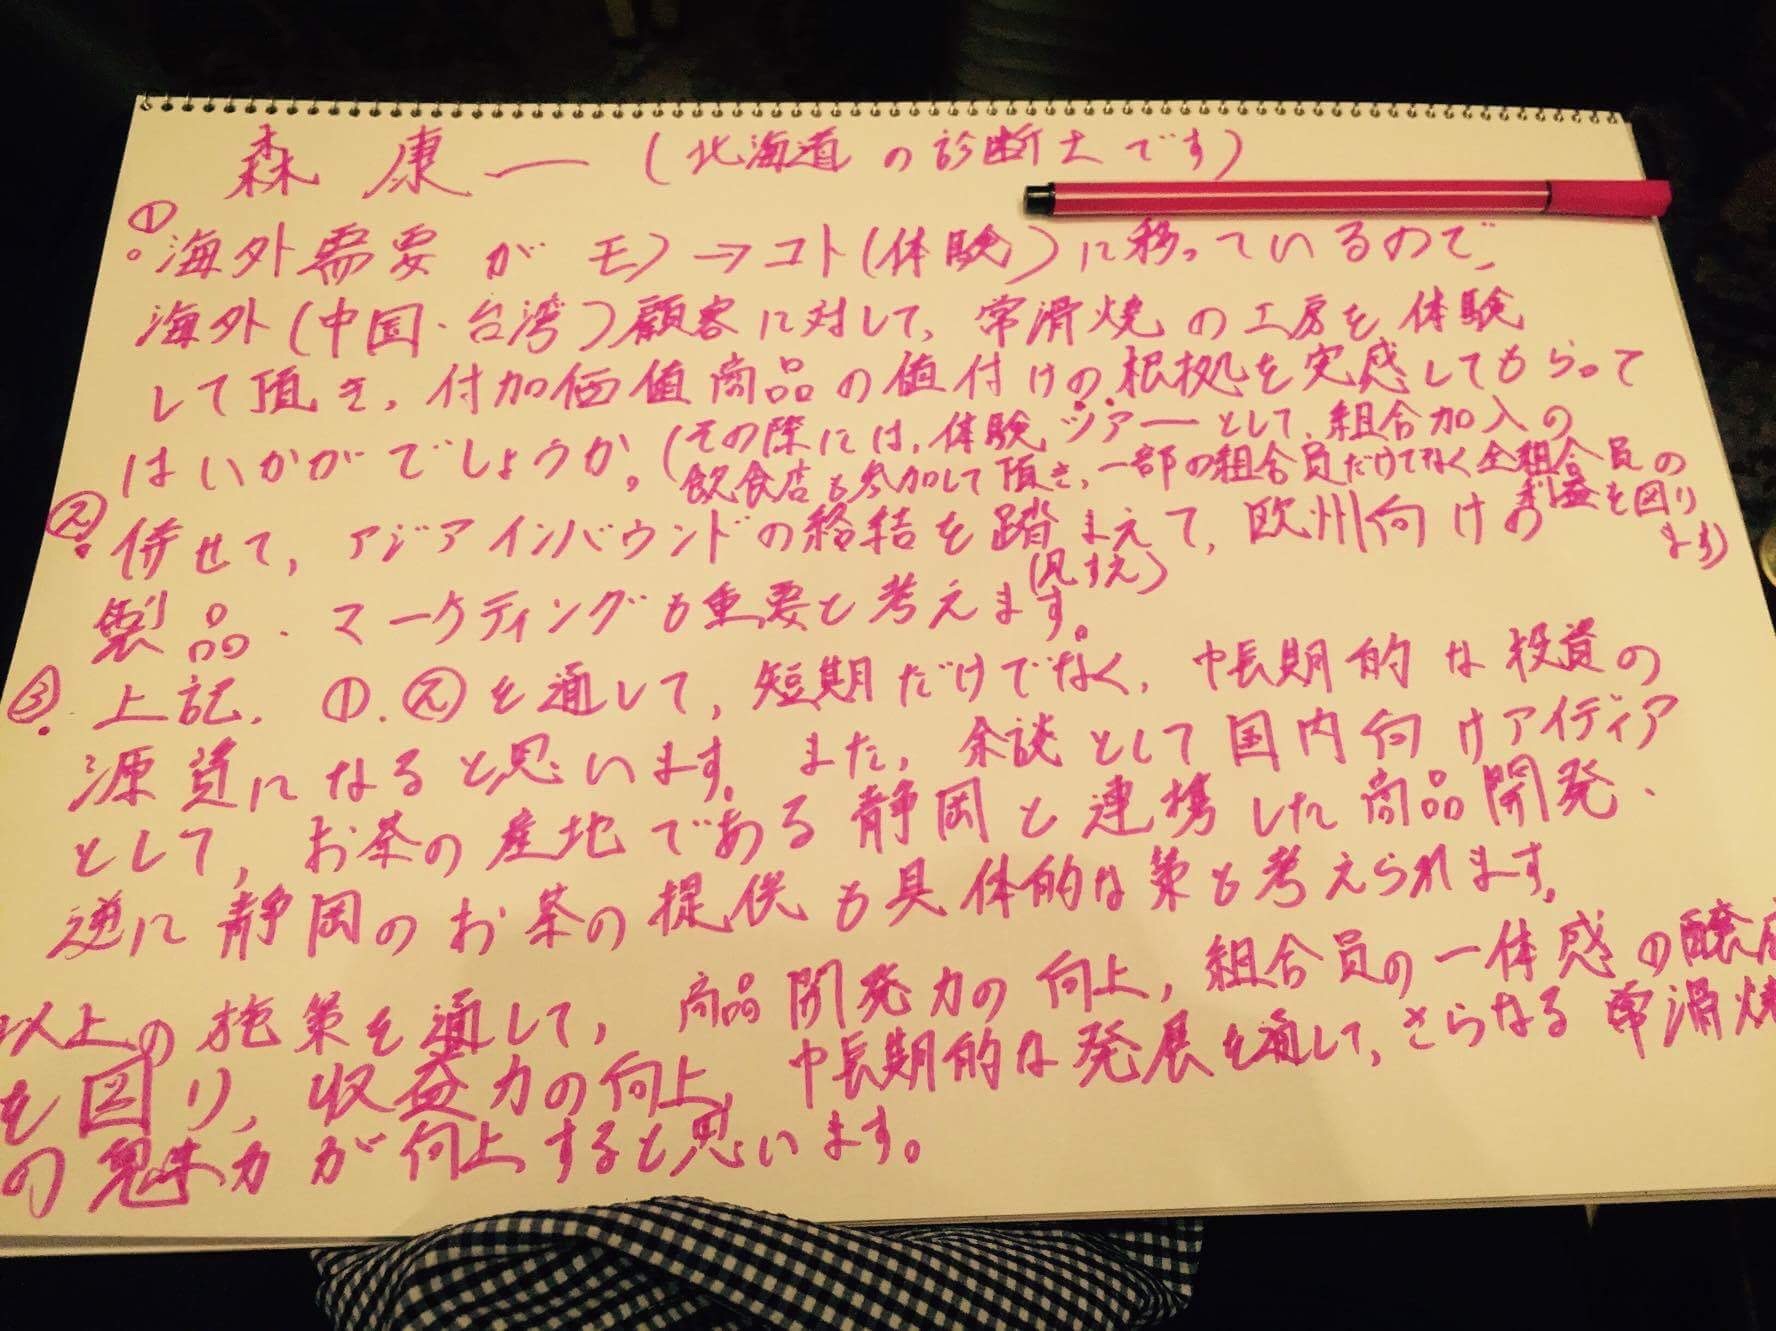 森 康一 (北海道の診断士です)
①。海外需要がモノ→コト(体験)に移っているので、
海外(中国・台湾)顧客に対して、常滑焼の工房を体験
して頂き、付加価値商品の値付けの根拠を実感してもらって
はいかがでしょうか。(その際には、体験ツアーとして、組合加入の
飲食店も参加して頂き、一部の組合員だけでなく全組合員の
利益を図り
ます)
②. 併せて、アジアインバウンドの終結を踏まえて、欧州向けの
製品・マーケティングも重要と考えます。
(見すえ)
③. 上記、①、②を通して、短期だけでなく、中長期的な投資の
源資になると思います。また、余談として国内向けアイディア
として、お茶の産地である静岡と連携した商品開発・
逆に静岡のお茶の提供も具体的な策も考えられます。
以上の施策を通して、商品開発力の向上、組合員の一体感の醸成
を図り、収益力の向上、中長期的な発展を通して、さらなる常滑焼
の魅力が向上すると思います。